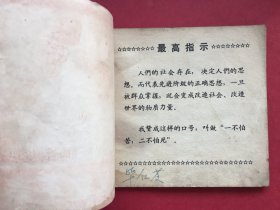 ☆☆☆☆☆☆☆ 最高指示 ☆☆☆☆☆☆☆
人們的社会存在，决定人們的思
想。而代表先进阶級的正确思想，一旦
被群众掌握，就会变成改造社会、改造
世界的物质力量。
我贊成这样的口号，叫做“一不怕
苦，二不怕死”。
☆☆☆☆☆☆☆☆☆☆☆☆☆☆☆☆☆☆☆☆